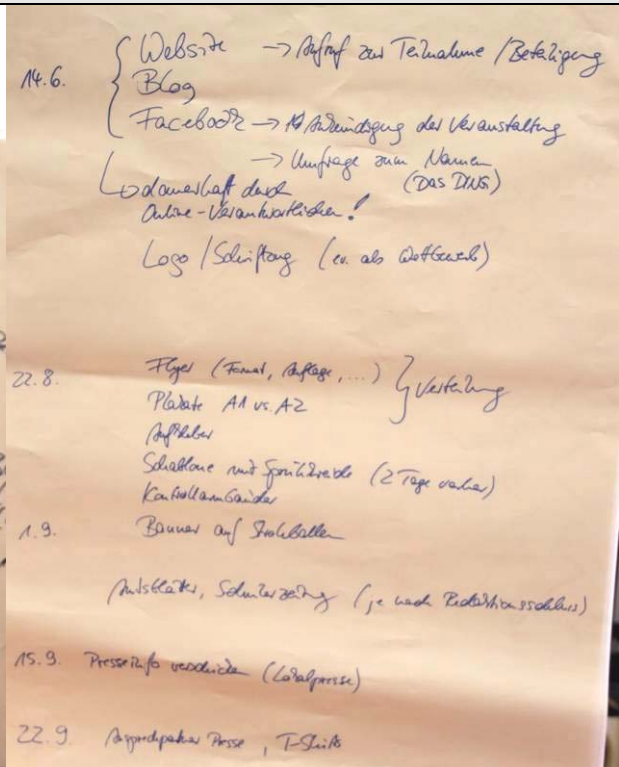 14.6. Website → Aufruf zur Teilnahme / Beteiligung
Blog
Facebook → Ankündigung der Veranstaltung
→ Umfrage zum Namen
(Das DING)
↳ dauerhaft durch
Online-Verantwortlichen!
Logo / Schriftzug (ev. als Wettbewerb)
22.8. Flyer (Format, Auflage, ...) } Verteilung
Plakate A1 vs. A2
Aufkleber
Schablone mit Sprühkreide (2 Tage vorher)
Kontrollarmbänder
1.9. Banner auf Strohballen
Amtsblätter, Schülerzeitung (je nach Redaktionsschluss)
15.9. Presseinfo verschicken (Lokalpresse)
22.9. Ansprechpartner Presse, T-Shirts